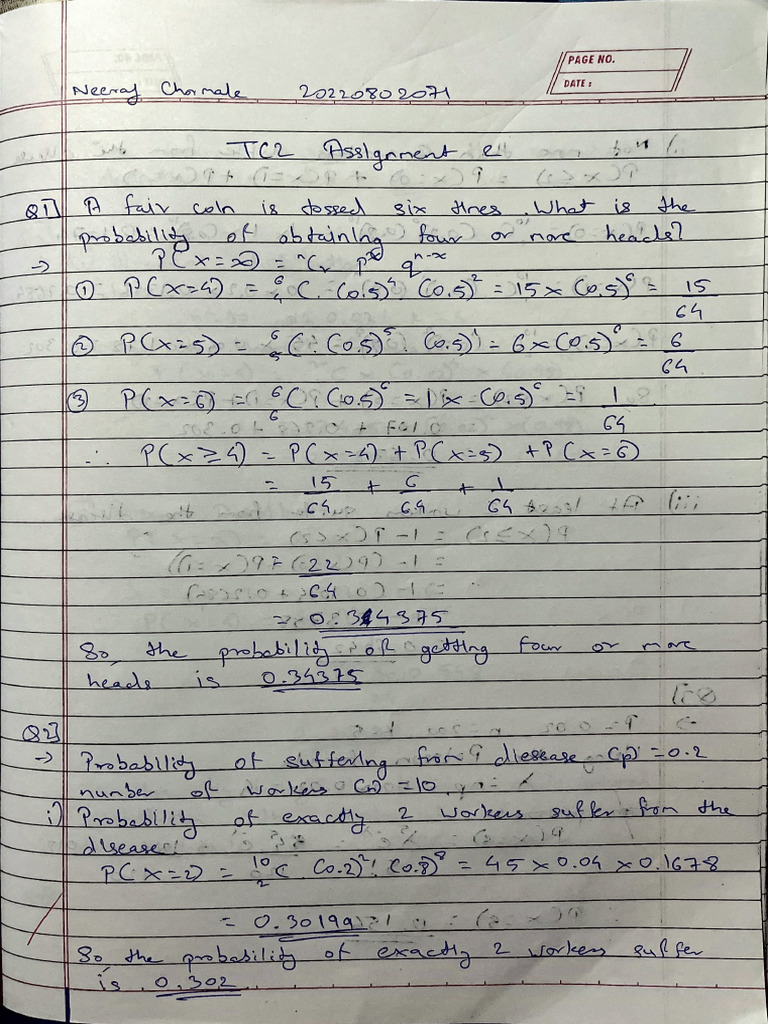 PAGE NO.
DATE:
Neeraj Chormale 20220802071
TC2 Assignment 2
Q1] A fair coin is tossed six times. What is the
probability of obtaining four or more heads?
→ P(x=x) = ⁿCᵣ pˣ qⁿ⁻ˣ
① P(x=4) = ⁶₄C · (0.5)⁴ (0.5)² = 15 × (0.5)⁶ = 15/64
② P(x=5) = ⁶₅C · (0.5)⁵ · (0.5)¹ = 6 × (0.5)⁶ = 6/64
③ P(x=6) = ⁶₆C · (0.5)⁶ = 1 × (0.5)⁶ = 1/64
∴ P(x≥4) = P(x=4) + P(x=5) + P(x=6)
= 15/64 + 6/64 + 1/64
22/64
= 0.34375
So, the probability of getting four or more
heads is 0.34375
Q2]
→ Probability of suffering from diesease (p) = 0.2
number of workers (n) = 10
i) Probability of exactly 2 workers suffer from the
disease
P(x=2) = ¹⁰₂C (0.2)² · (0.8)⁸ = 45 × 0.04 × 0.1678
= 0.30199
So the probability of exactly 2 workers suffer
is 0.302